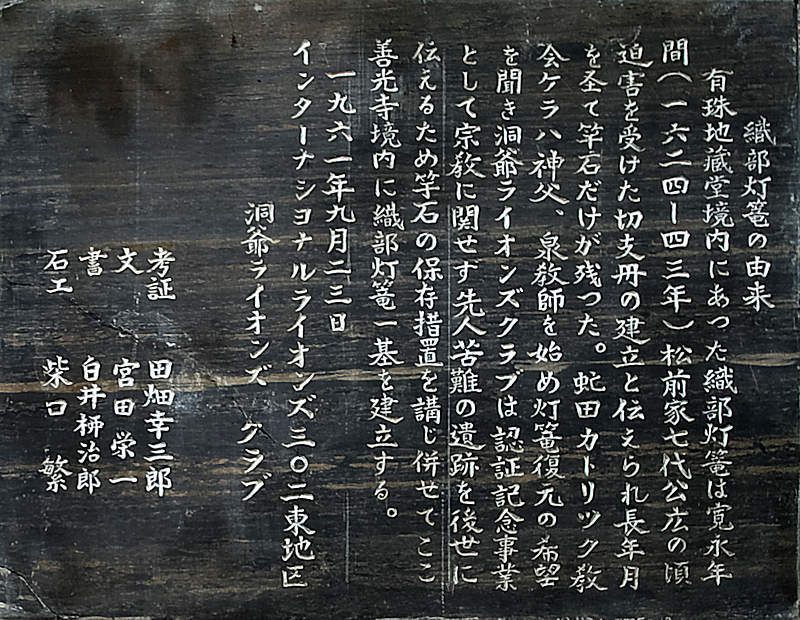 織部灯篭の由来
有珠地蔵堂境内にあつた織部灯篭は寛永年
間(一六二四ー四三年)松前家七代公広の頃
迫害を受けた切支丹の建立と伝えられ長年月
を圣て竿石だけが残つた。虻田カトリック教
会ケラハ神父、泉教師を始め灯篭復元の希望
を聞き洞爺ライオンズクラブは認証記念事業
として宗教に関せず先人苦難の遺跡を後世に
伝えるため竿石の保存措置を講じ併せてここ
善光寺境内に織部灯篭一基を建立する。
一九六一年九月二三日
インターナショナルライオンズ三〇二東地区
洞爺ライオンズ クラブ
考証 田畑幸三郎
文 宮田栄一
書 白井柹治郎
石工 柴口 繁